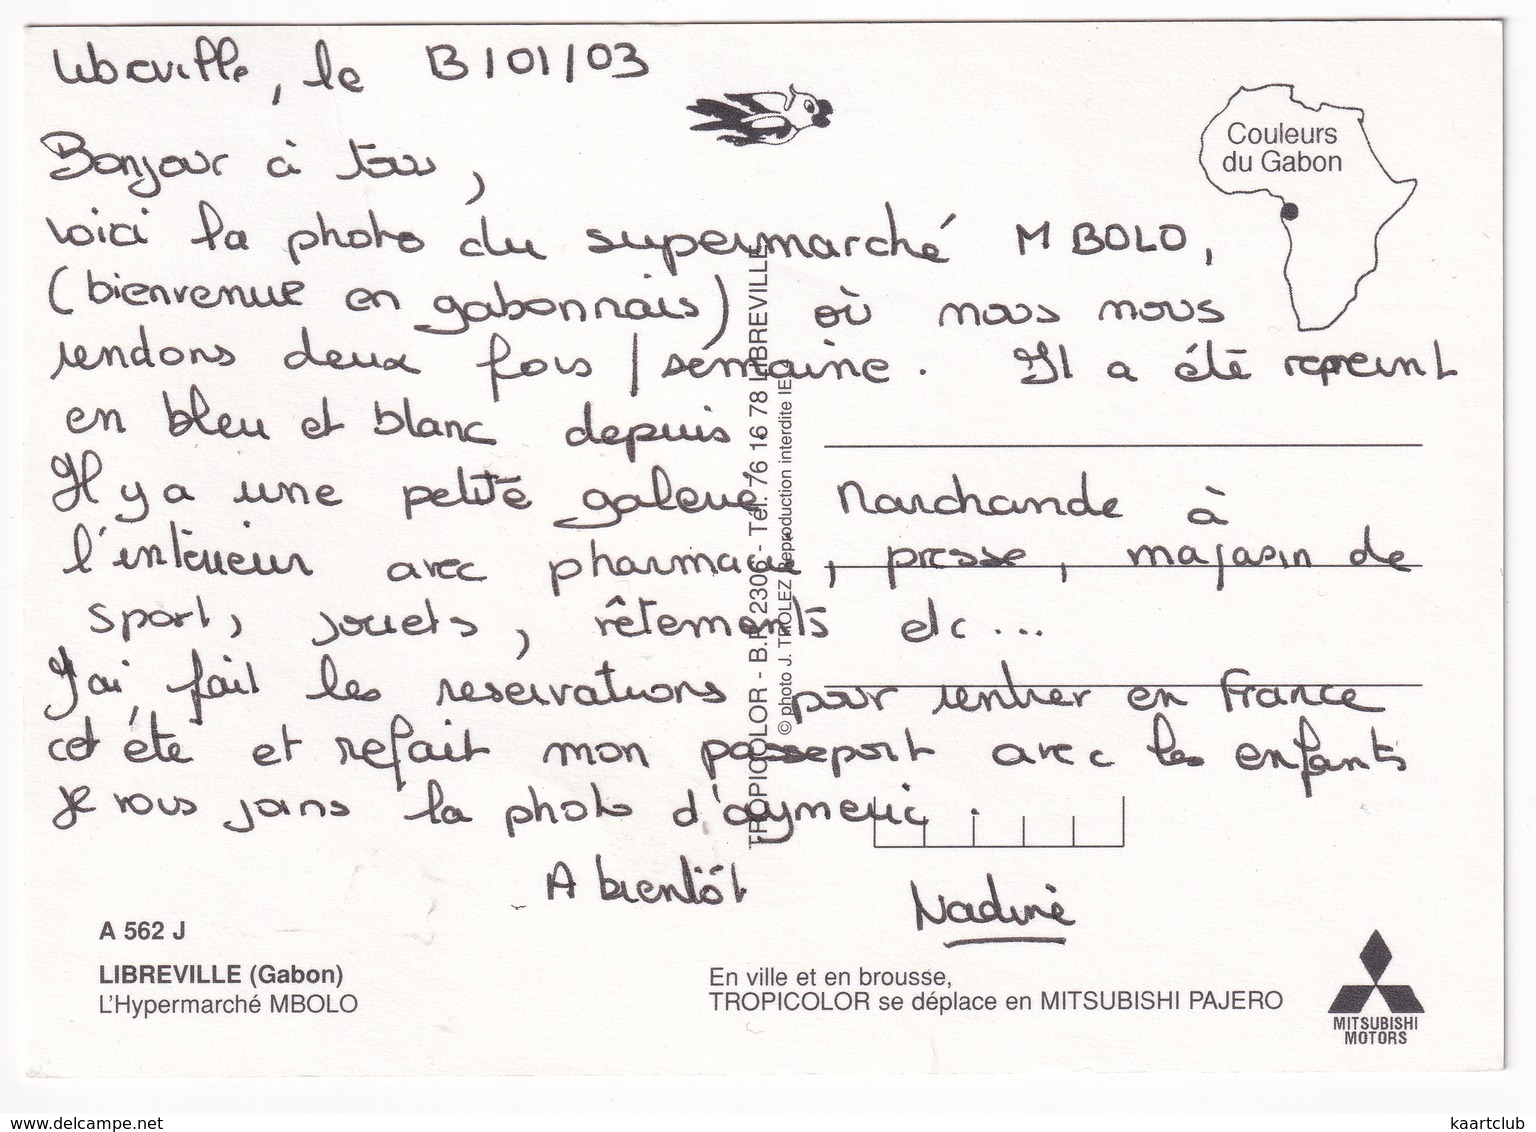 Libreville, le 13/01/03
Bonjour à tous,
voici la photo du supermarché MBOLO,
(bienvenue en gabonnais) où nous nous
rendons deux fois / semaine. Il a été repeint
en bleu et blanc depuis.
Il y a une petite galerie Marchande à
l'intérieur avec pharmacie, presse, magasin de
sport, jouets, vêtements etc...
J'ai fait les réservations pour rentrer en France
cet été et refait mon passeport avec les enfants
je vous joins la photo d'aymeric.
A bientôt
Nadine
Couleurs
du Gabon
TROPICOLOR - B.P. 2306 - Tél. 76 16 78 LIBREVILLE
© photo J. TROLEZ Reproduction interdite IE
A 562 J
LIBREVILLE (Gabon)
L'Hypermarché MBOLO
En ville et en brousse,
TROPICOLOR se déplace en MITSUBISHI PAJERO
MITSUBISHI
MOTORS
www.delcampe.net
kaartclub